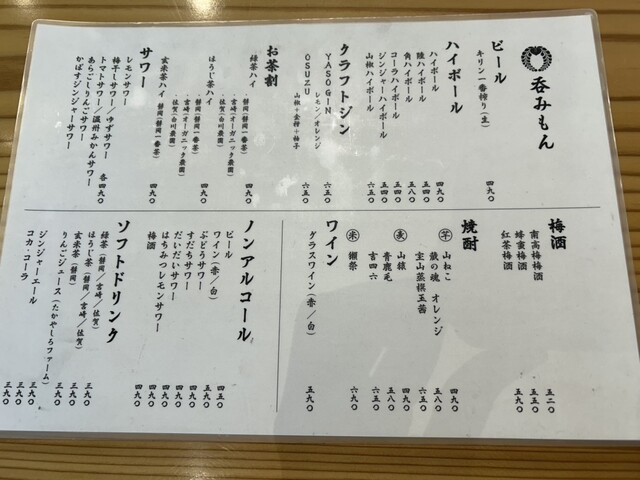 呑みもん
ビール
キリン一番搾り(生) 四九〇
ハイボール
ハイボール 四九〇
陸ハイボール 五四〇
角ハイボール 五四〇
コーラハイボール 五八〇
ジンジャーハイボール 五八〇
山椒ハイボール 六五〇
クラフトジン
YASOGIN レモン/オレンジ 六五〇
OSUZU 山椒+金柑+柚子 六五〇
お茶割
緑茶ハイ 四九〇
・静岡(静岡一番茶)
・宮崎(オーガニック農園)
・佐賀(白川農園)
ほうじ茶ハイ 四九〇
・静岡(静岡一番茶)
・宮崎(オーガニック農園)
・佐賀(白川農園)
玄米茶ハイ 静岡(静岡一番茶) 四九〇
サワー
レモンサワー
梅干しサワー/ゆずサワー 各四九〇
トマトサワー/温州みかんサワー
あらごしりんごサワー
かぼすジンジャーサワー
梅酒
南高梅梅酒 五二〇
蜂蜜梅酒 五五〇
紅茶梅酒 五五〇
焼酎
芋 山ねこ 四九〇
蔵の魂 オレンジ 五八〇
宝山蒸撰玉茜 六五〇
麦 山猿 四九〇
青鹿毛 五八〇
吉四六 六五〇
米 獺祭 六九〇
ワイン
グラスワイン(赤/白) 五九〇
ノンアルコール
ビール 四五〇
ワイン(赤/白) 五九〇
ぶどうサワー 四九〇
すだちサワー 四九〇
だいだいサワー 四九〇
はちみつレモンサワー 四九〇
梅酒 四九〇
ソフトドリンク
緑茶(静岡/宮崎/佐賀) 三九〇
ほうじ茶(静岡/宮崎/佐賀) 三九〇
玄米茶(静岡) 三九〇
りんごジュース(たかやしろファーム) 三九〇
ジンジャーエール 三九〇
コカ・コーラ 三九〇